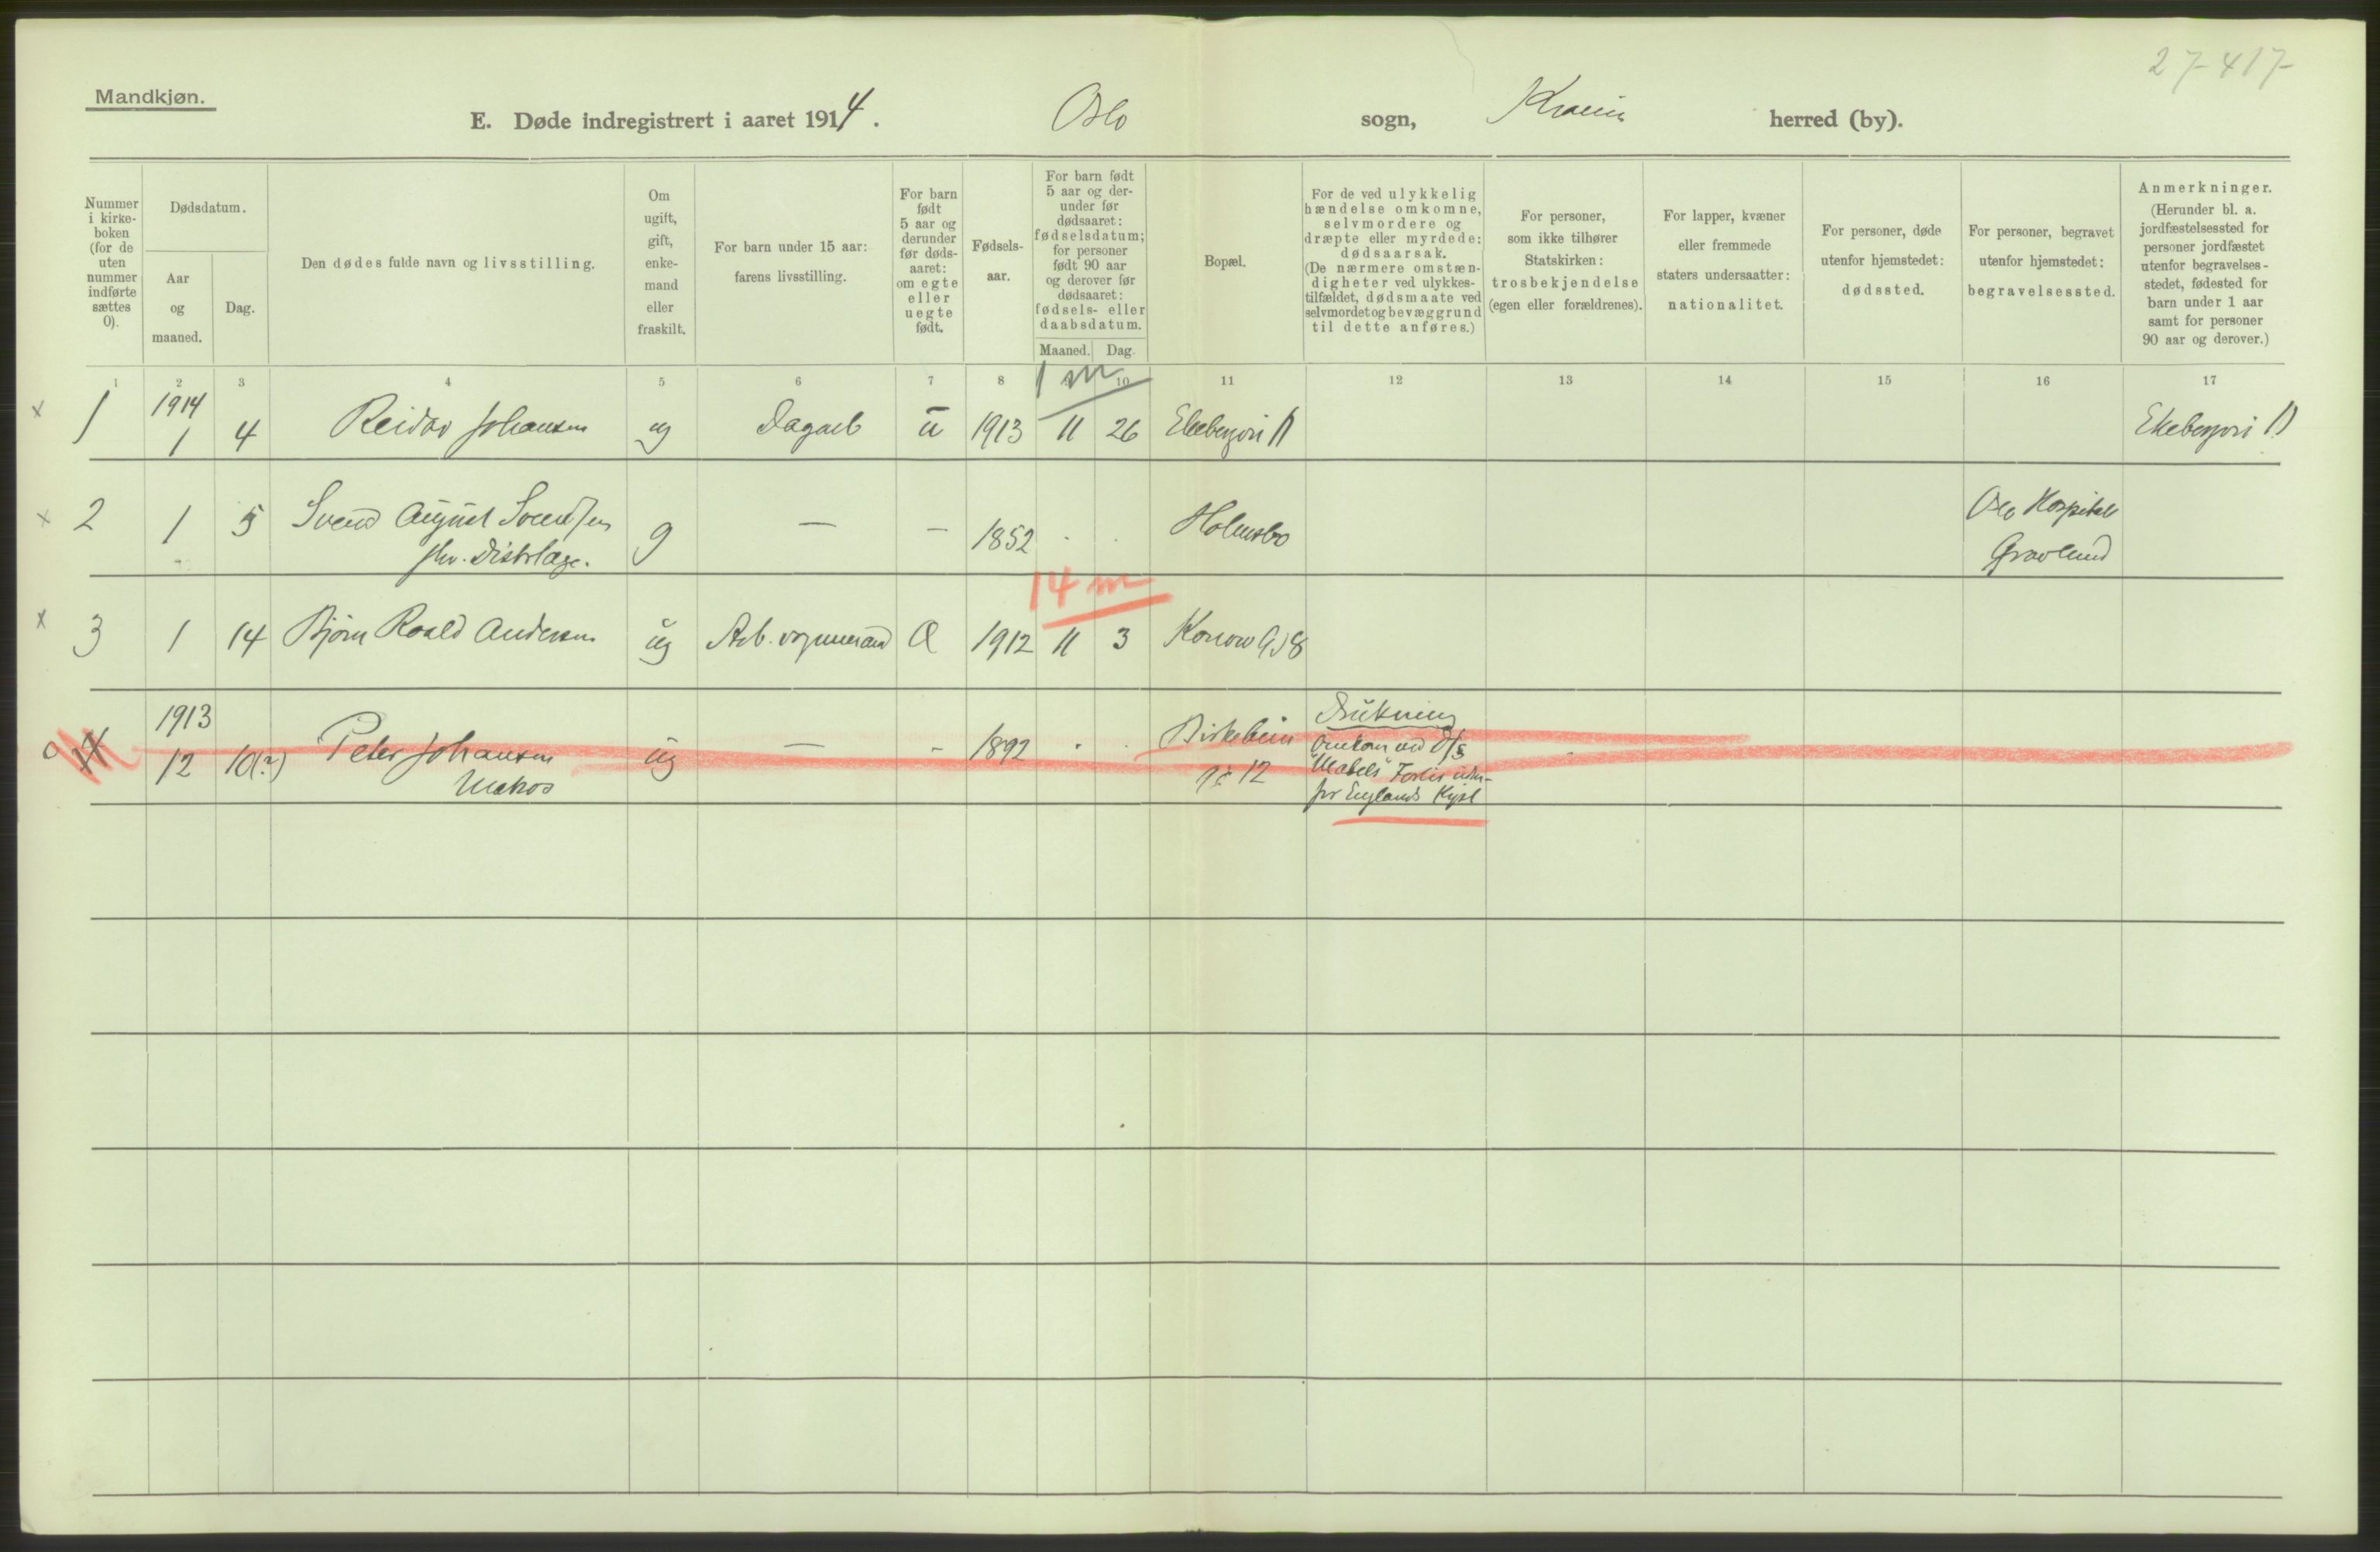 27-417-
Mandkjøn.
E. Døde indregistrert i aaret 1914. Oslo sogn, Kra herred (by).
Nummer i kirke- boken (for de uten nummer indførte sættes 0).
Dødsdatum.
Aar og maaned.
Dag.
Den dødes fulde navn og livsstilling.
Om ugift, gift, enke- mand eller fraskilt.
For barn under 15 aar: farens livsstilling.
For barn født 5 aar og derunder før døds- aaret: om egte eller uegte født.
Fødsels- aar.
For barn født 5 aar og der- under før dødsaaret: fødselsdatum; for personer født 90 aar og derover før dødsaaret: fødsels- eller daabsdatum.
Maaned. Dag.
Bopæl.
For de ved ulykkelig hændelse omkomne, selvmordere og dræpte eller myrdede: dødsaarsak. (De nærmere omstæn- digheter ved ulykkes- tilfældet, dødsmaate ved selvmordet og bevæggrund til dette anføres.)
For personer, som ikke tilhører Statskirken: trosbekjendelse (egen eller forældrenes).
For lapper, kvæner eller fremmede staters undersaatter: nationalitet.
For personer, døde utenfor hjemstedet: dødssted.
For personer, begravet utenfor hjemstedet: begravelsessted.
Anmerkninger. (Herunder bl. a. jordfæstelsessted for personer jordfæstet utenfor begravelses- stedet, fødested for barn under 1 aar samt for personer 90 aar og derover.)
1 2 3 4 5 6 7 8 10 11 12 13 14 15 16 17
1 m
x 1 1914 1 4 Reidar Johansen ug Dagarb u 1913 11 26 Ekebergvei 11 Ekebergvei 11
x 2 1 5 Svend August Svendsen g — – 1852 Holmsbo Oslo Hospitals
fhv. Distrlæge. Gravlund
14 m
x 3 1 14 Bjørn Roald Andersen ug Arb. vognmand Æ 1912 11 3 Konow G) 8
0 4 1913 12 10(?) Peter Johansen ug — - 1892 Birkebein Drukning
Matros 12 Omkom ved D/S
"Mabels" Forlis uden-
for Englands Kyst